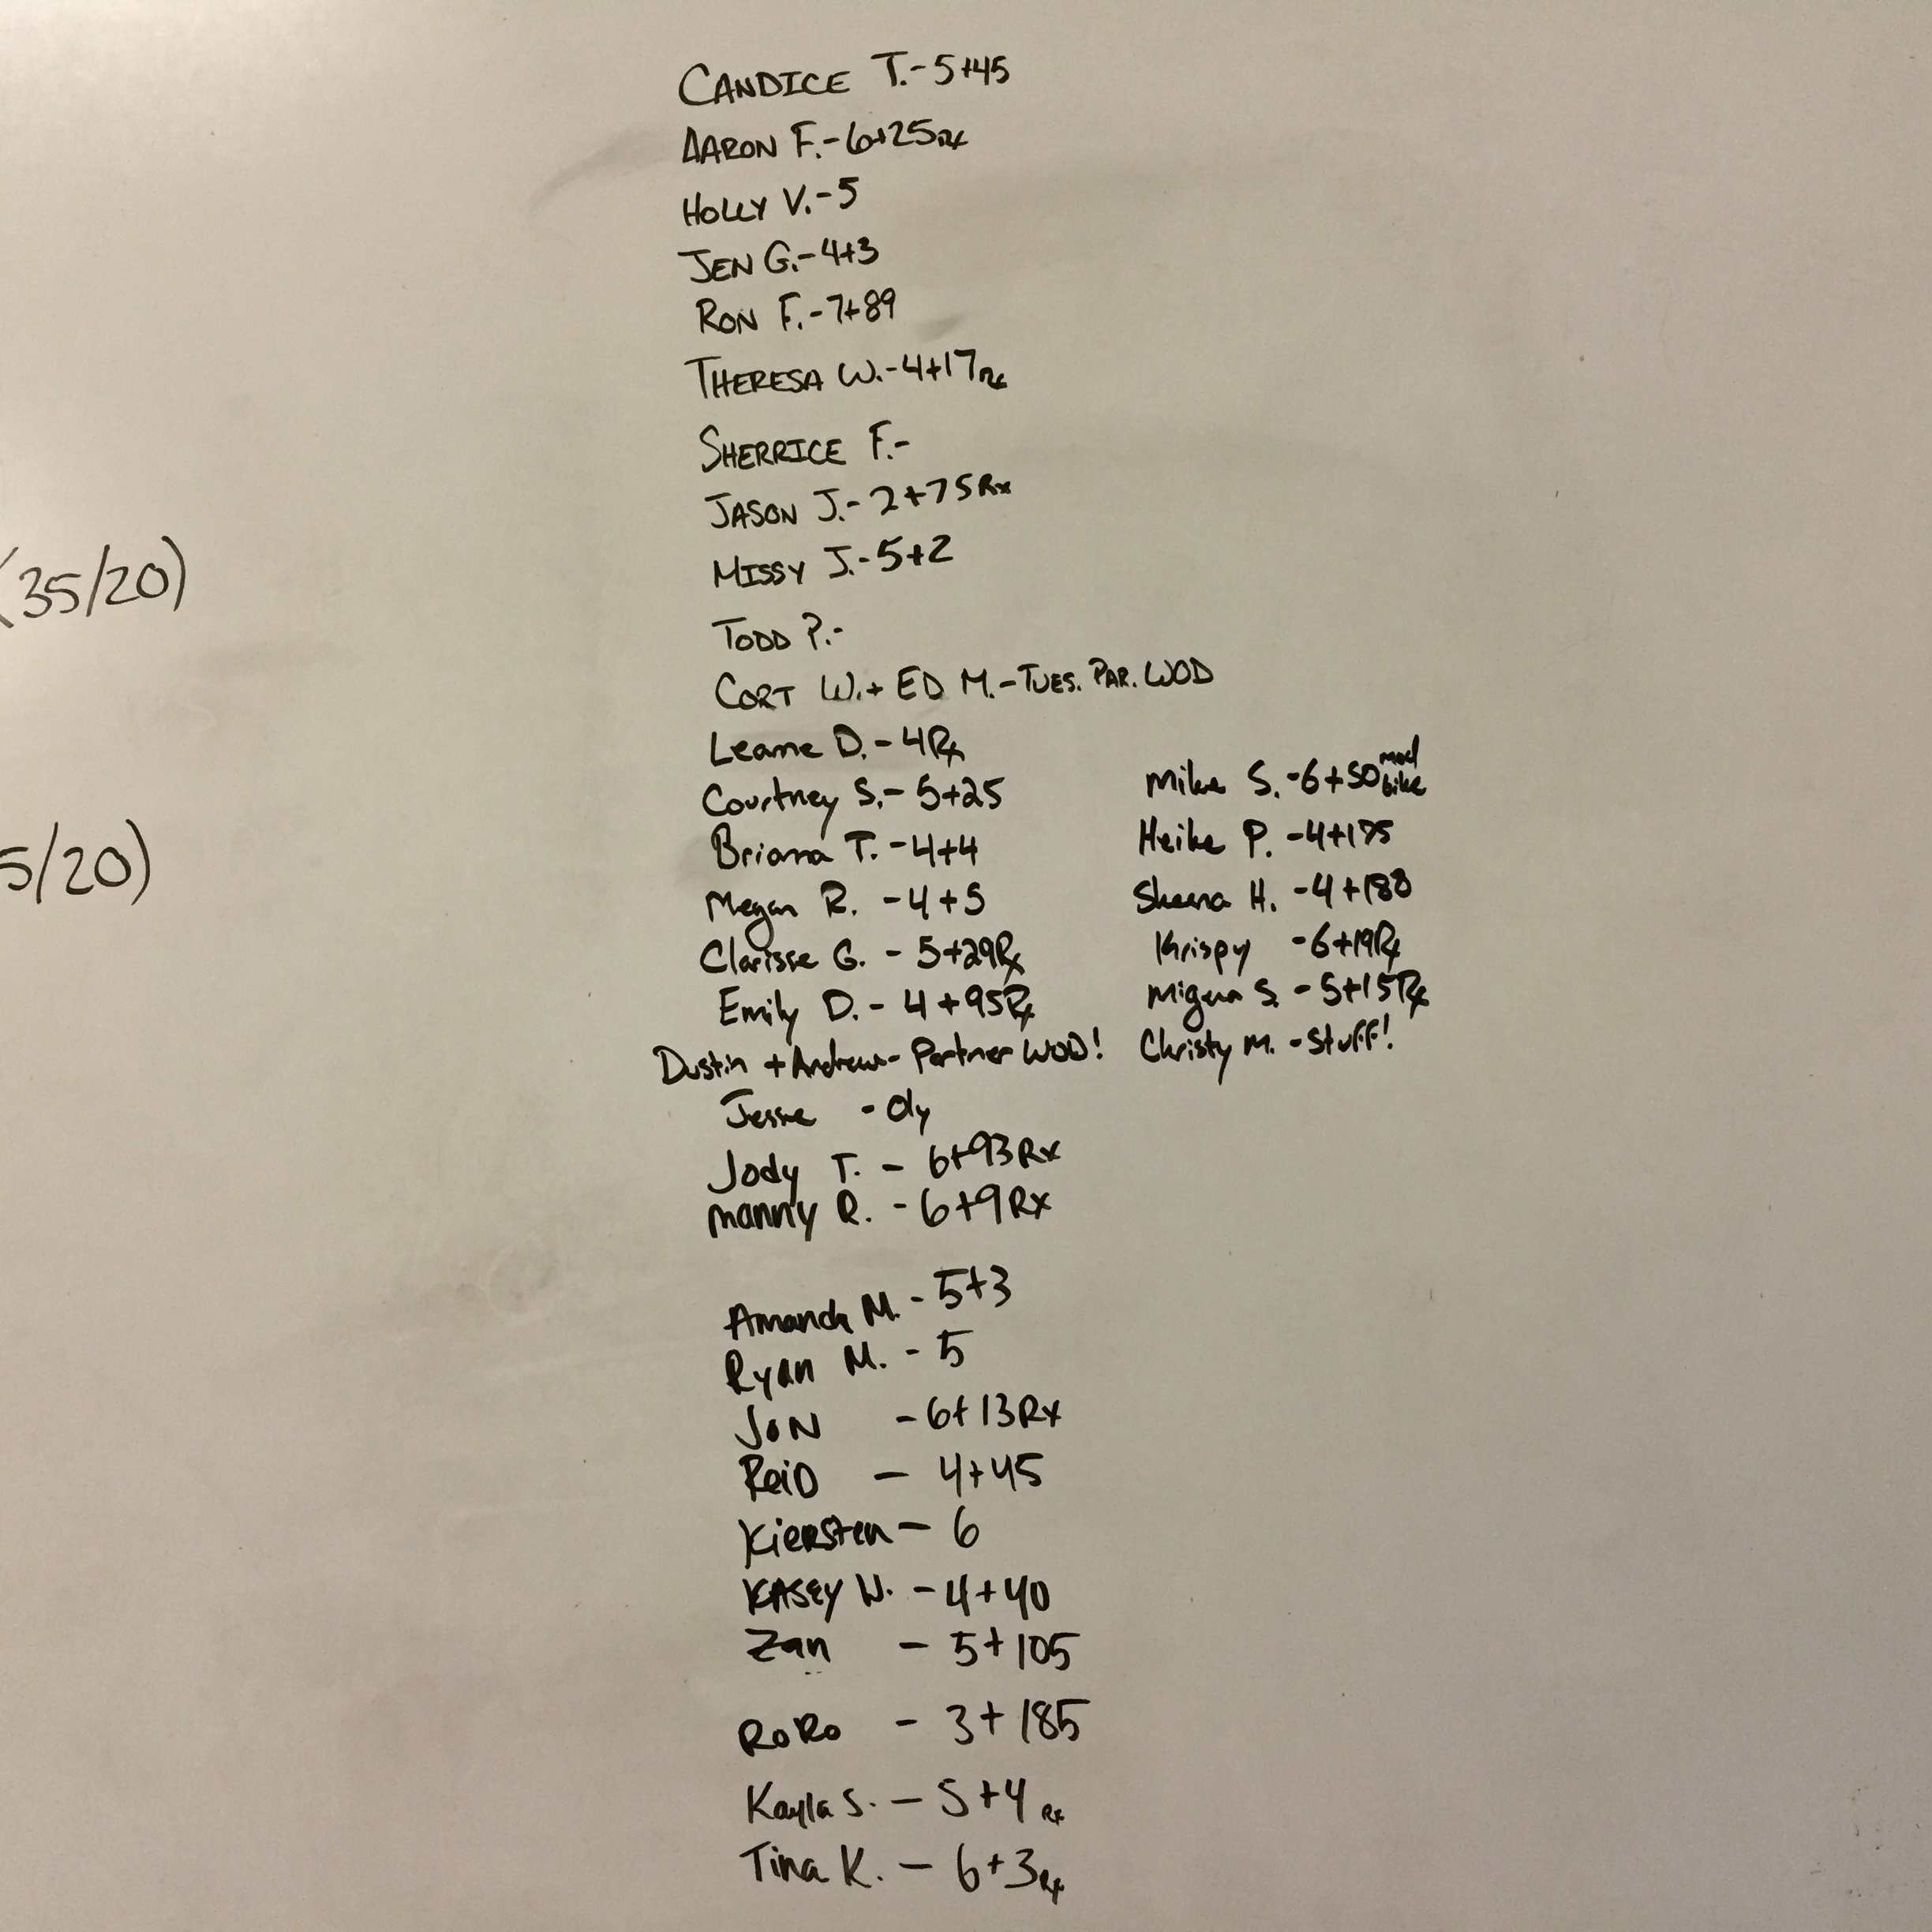 CANDICE T.-5+45
AARON F.-6+25Rx
HOLLY V.-5
JEN G.-4+3
RON F.-7+89
THERESA W.-4+17Rx
SHERRICE F.-
JASON J.-2+75Rx
MISSY J.-5+2
TODD P.-
CORT W.+ ED M.-TUES. PAR. WOD
Leanne D.-4Rx
Courtney S.-5+25
Briana T.-4+4
Megan R. -4+5
Clarisse G. - 5+29Rx
Emily D.- 4+95Rx
Dustin +Andrew- Partner WOD!
Jesse - Oly
Jody T. - 6+93Rx
Manny R. - 6+9Rx
Amanda M. - 5+3
Ryan M. - 5
JON - 6+13Rx
ReiD - 4+45
Kiersten - 6
KASEY W. - 4+40
Zan - 5+105
RoRo - 3+185
Kayla S. - 5+4 Rx
Tina K. - 6+3Rx
Mike S. -6+50 mod bike
Heike P. -4+175
Sheena H. -4+188
Krispy -6+19Rx
S. -5+15Rx
Christy M. -Stuff!
(35/20)
5/20)